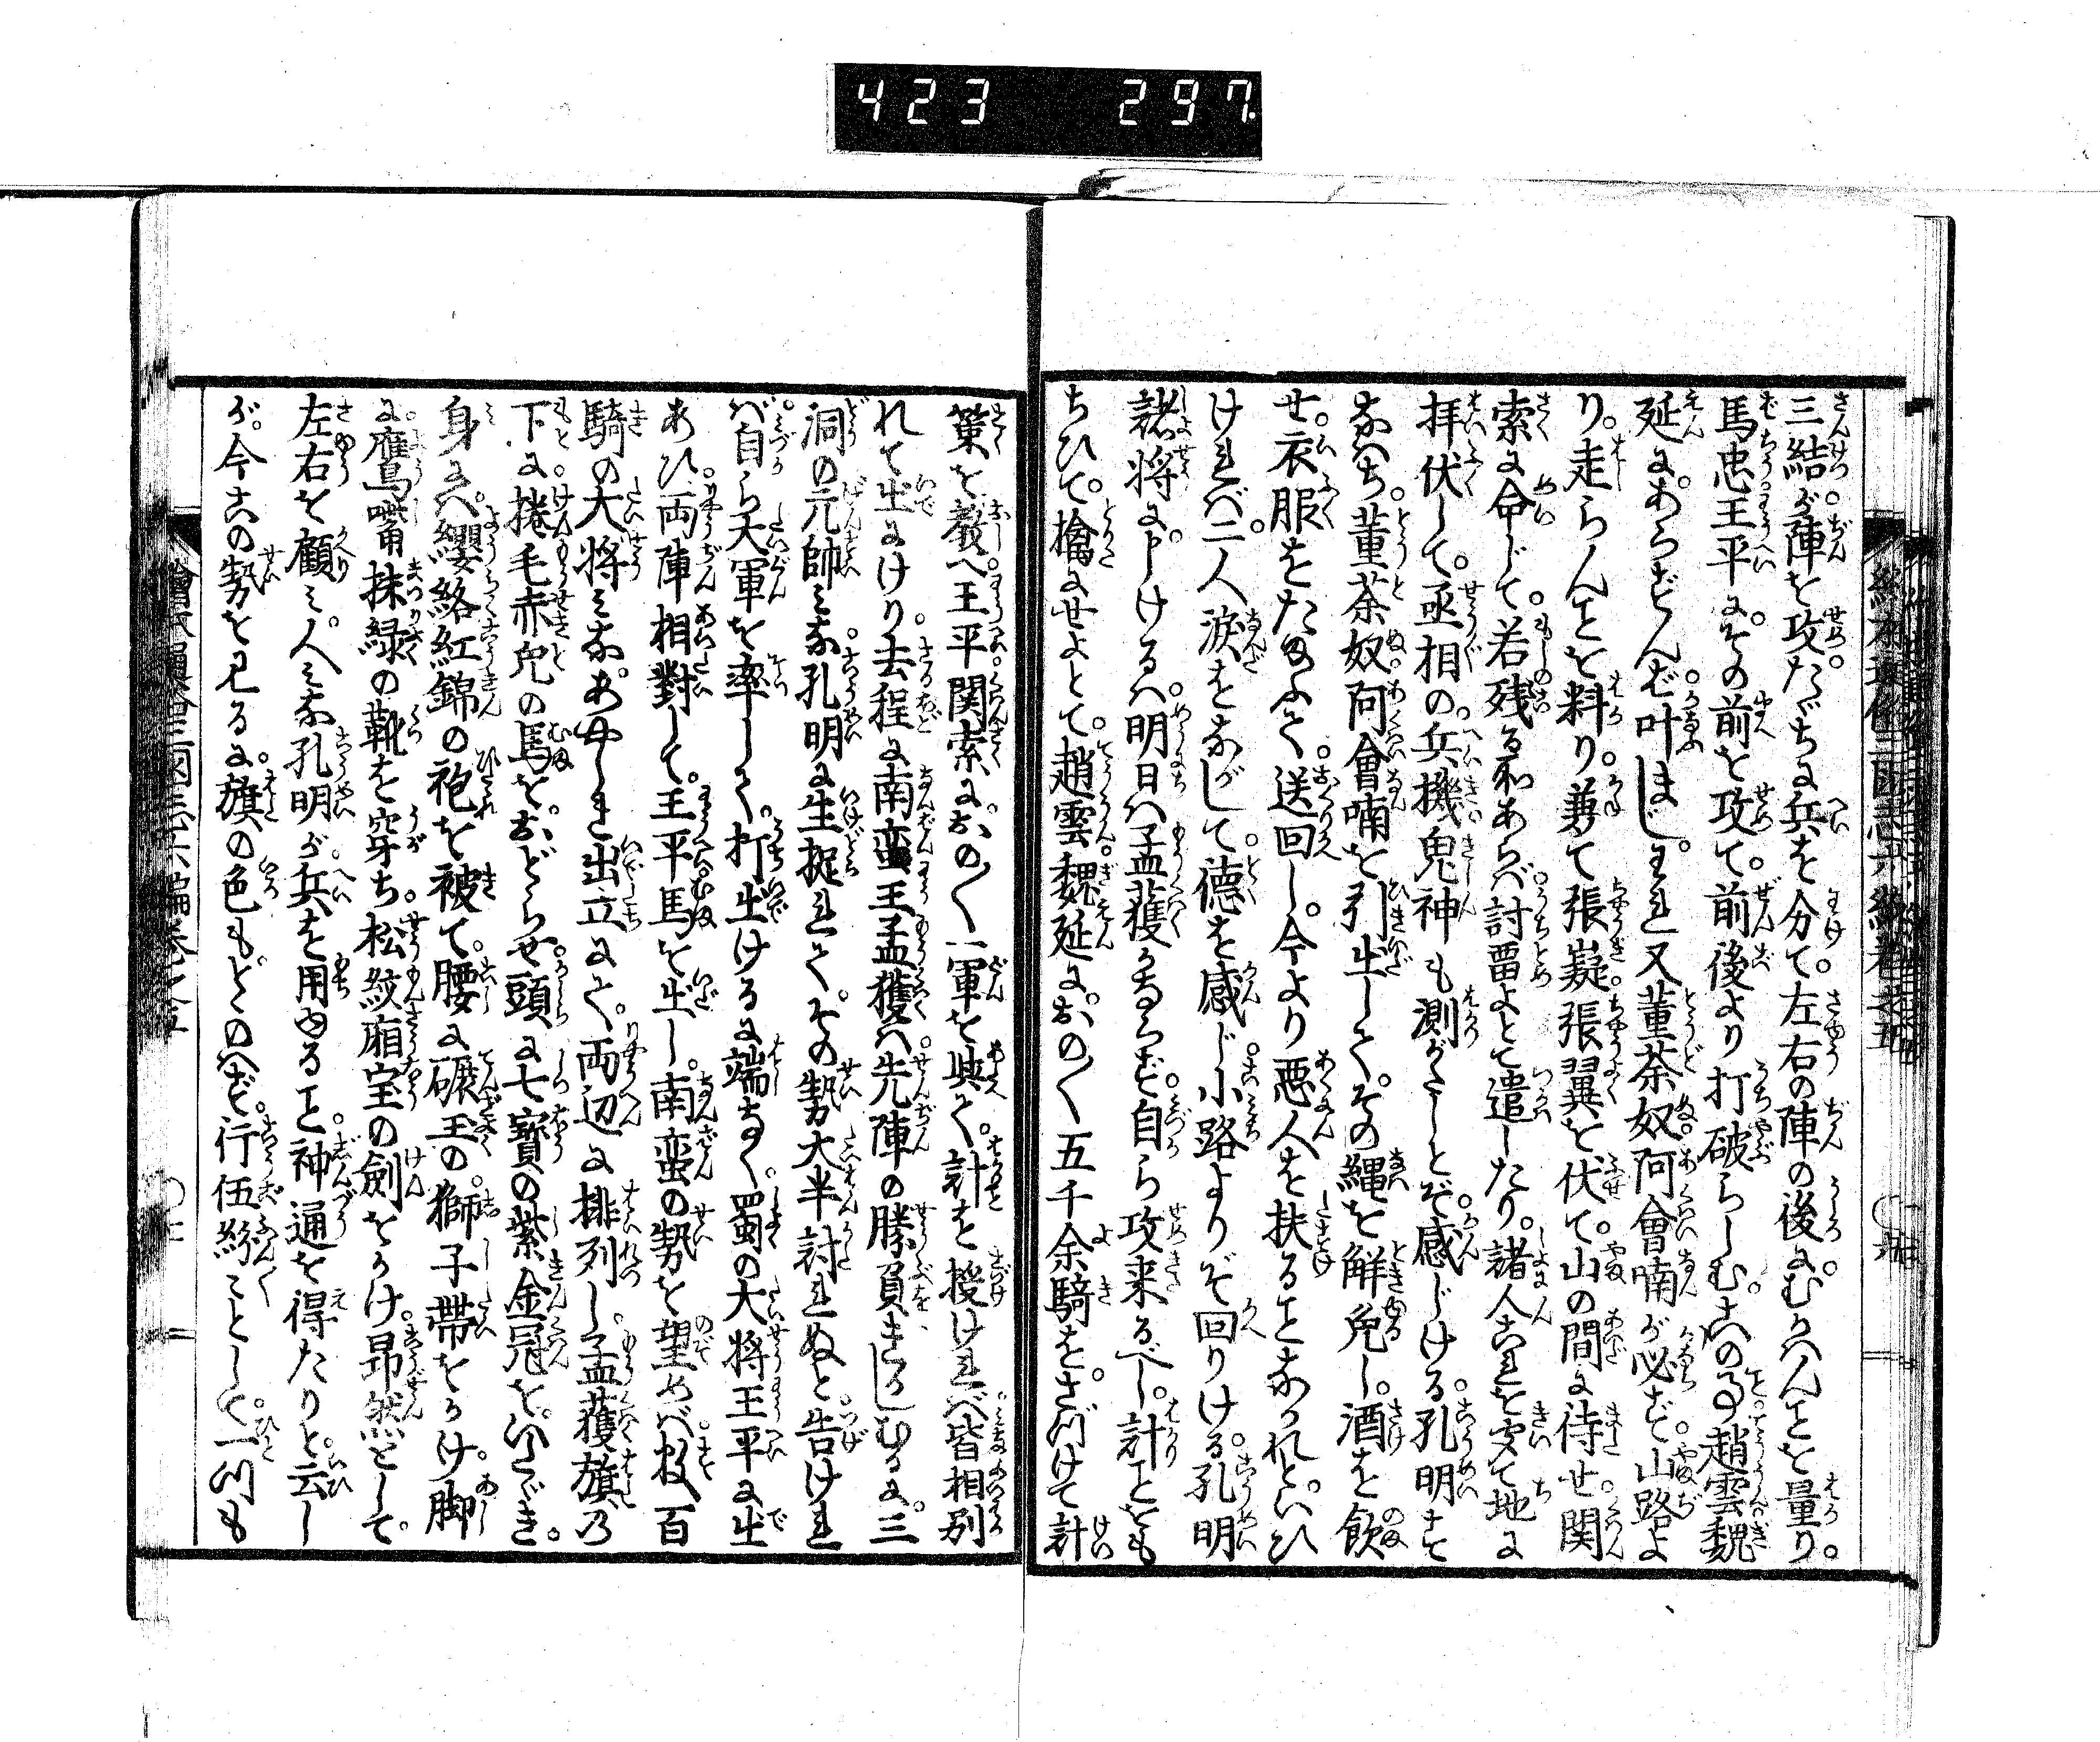 423 297
三結が陣を攻。たゞちに兵を分て。左右の陣の後に。むかへんことを量り。
馬忠。王平に。その前を攻て。前後より打破らしむ。このゆへ趙雲魏
延に。あらざんば叶まじ。われ又董荼奴。阿會喃が必ず。山路よ
り。走らんことを料り。兼て張嶷。張翼を伏て。山の間に待せ。関
索に命じて。若残る和あらば。討畱よとて遣したり。諸人これを聞て地に
拝伏して。丞相の兵機。鬼神も測がたしとぞ。感じける。孔明さて
すなはち。董荼奴。阿會喃を引出して。その縄を觧免し。酒を飲
せ。衣服をたまふて。送回し。今より悪人を扶ることなかれと。いひ
ければ。二人涙をながして。徳を感じ。小路よりぞ回りける。孔明
諸将に申けるハ。明日ハ孟獲かならず。自ら攻来るべし。計ことをも
ちひて。擒にせよとて。趙雲。魏延に。おの〳〵五千余騎を。さづけて計
策を教へ。王平。関索に。おの〳〵一軍を與て。計を授ければ。皆相別
れて出にけり。去程に南蛮王孟獲ハ。先陣の勝負をきかしむるに。三
洞の元帥みな。孔明に生捉れて。その勢大半討れぬと。告けれ
ば。自ら大軍を率して。打出けるに端なく。蜀の大将王平に出
あひ。両陣相對して。王平馬を出し。南蛮の勢を望めば。数百
騎の大将みな。あやしき出立にて。両辺に排列し。孟獲旗の
下に。捲毛赤兎の馬を。おどらせ。頭に七寳の紫金冠を。いたゞき。
身にハ。纓絡紅錦の袍を被て。腰に碾玉の。獅子帯をかけ。脚
に。鷹嘴抹緑の靴を穿ち。松紋廂宝の劍をかけ。昂然として。
左右を顧み。人みな孔明が兵を用ゆること。神通を得たりと。云し
が。今この勢を見るに。旗の色もとゝのはず。行伍紛々として。一つも